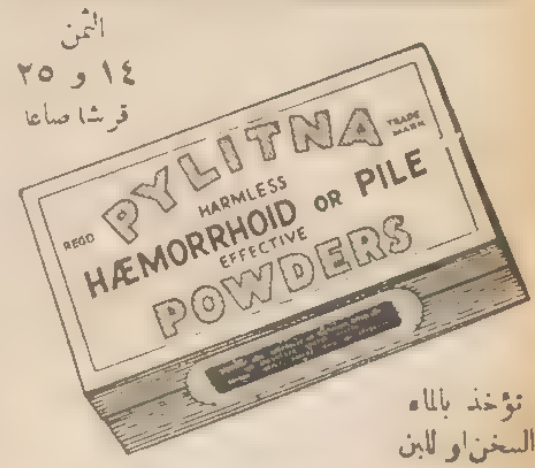 الثمن
١٤ و ٢٥
قرشا صاغا
PYLITNA
REGD
TRADE
MARK
HARMLESS
HÆMORRHOID OR PILE
EFFECTIVE
POWDERS
تؤخذ بالماء
السخن او للبن